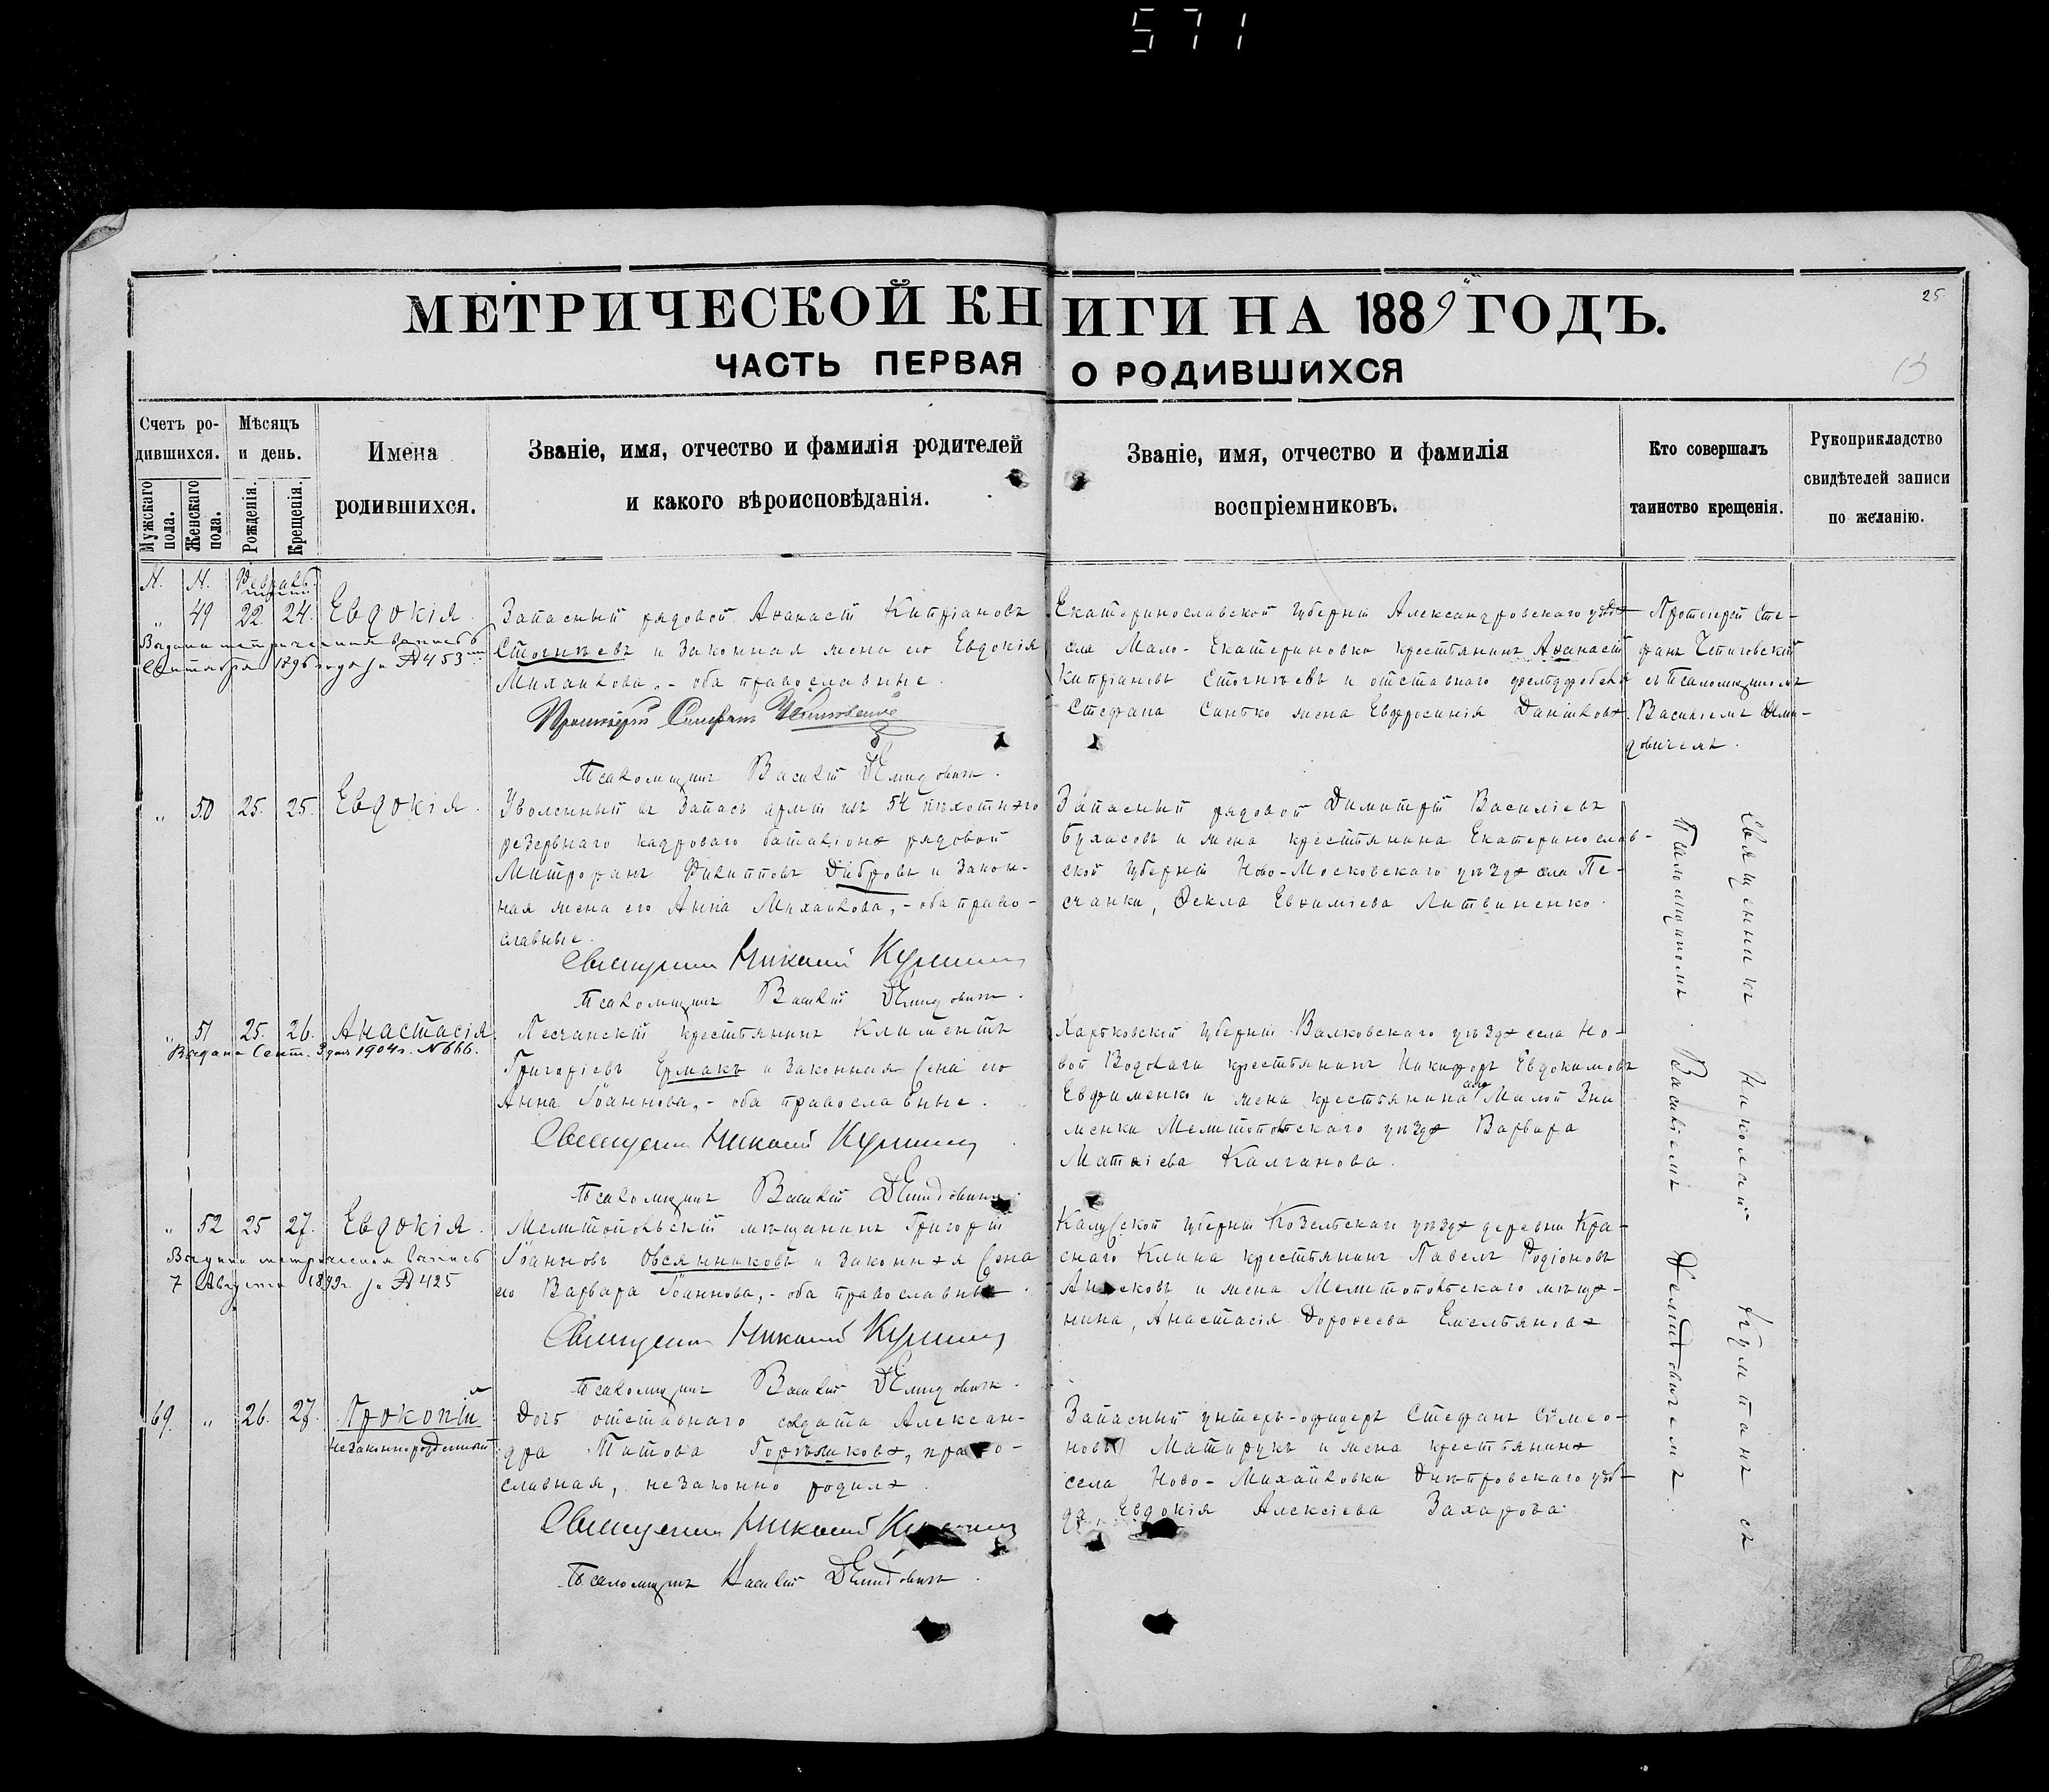 571
МЕТРИЧЕСКОЙ КНИГИ НА 1889й ГОДЪ.
25
ЧАСТЬ ПЕРВАЯ О РОДИВШИХСЯ
Счетъ ро-
дившихся.
Мужскаго пола.
Женскаго пола.
Мѣсяцъ
и день.
Рожденія.
Крещенія.
Имена
родившихся.
Званіе, имя, отчество и фамилія родителей
и какого вѣроисповѣданія.
Званіе, имя, отчество и фамилія
воспріемниковъ.
Кто совершалъ
таинство крещенія.
Рукоприкладство
свидѣтелей записи
по желанію.
N. N. Февраль
" 49 22. 24. Евдокія.
Выдана метрическая запись
Сентября 1896 года за № 453
Запасный рядовой Аѳанасій Кипріановъ
Стогніевъ и законная жена его Евдокія
Михаилова, - оба православные.
Протоіерей Стефанъ
Псаломщикъ Василій Демидовичъ.
Екатеринославской губерніи Александровскаго уѣзда
села Мало-Екатериновки крестьянинъ Аѳанасій
Кипріановъ Стогніевъ и отставнаго фельдфебеля
Стефана Санько жена Евфросинія Данилова.
Протоіерей Сте-
фанъ
съ Псаломщикомъ
Василіемъ Деми-
довичемъ.
" 50 25. 25. Евдокія.
Уволенный въ запасъ арміи изъ 54 пѣхотнаго
резервнаго кадроваго баталіона рядовой
Митрофанъ Филипповъ Дибровъ и закон-
ная жена его Анна Михаилова, - оба право-
славные.
Священникъ Николай
Псаломщикъ Василій Демидовичъ.
Запасный рядовой Димитрій Василіевъ
Бухасовъ и жена крестьянина Екатеринослав-
ской губерніи Ново-Московскаго уѣзда села Пе-
счанки, Ѳекла Евѳиміева Литвиненко.
" 51 25. 26. Анастасія.
Выдана Сент. 3 дня 1904 г. N 666.
Песчанскій крестьянинъ Климентъ
Григоріевъ Ермакъ и законная жена его
Анна Іоаннова, - оба православные.
Священникъ Николай
Псаломщикъ Василій Демидовичъ.
Харьковской губерніи Валковскаго уѣзда села Но-
вой Водолаги крестьянинъ Никифоръ Евдокимовъ
Евфименко и жена крестьянина села Малой Зна
менки Мелитопольскаго уѣзда Варвара
Матѳіева Калганова.
" 52 25 27. Евдокія.
Выдана метрическая запись
7 Августа 1899 г за № 425
Мелитопольскій мѣщанинъ Григорій
Іоанновъ Овсянниковъ и законная жена
его Варвара Іоаннова, - оба православные.
Священникъ Николай
Псаломщикъ Василій Демидовичъ.
Калужской губерніи Козельскаго уѣзда деревни Кра-
снаго Клина крестьянинъ Павелъ Родіоновъ
и жена Мелитопольскаго мѣща-
нина, Анастасія Дороѳеева Емельянова
69. " 26. 27. Прокопій
незаконнорожденный
Дочь отставнаго солдата Алексан-
дра Титова Горѣликова, право-
славная, незаконно родила.
Священникъ Николай
Псаломщикъ Василій Демидовичъ.
Запасный унтеръ-офицеръ Стефанъ Симео-
новъ и жена крестьянина
села Ново-Михайловки Днѣпровскаго уѣз-
да Евдокія Алексіева Захарова.
Священникъ Николай Култанъ съ
Псаломщикомъ Василіемъ Демидовичемъ.